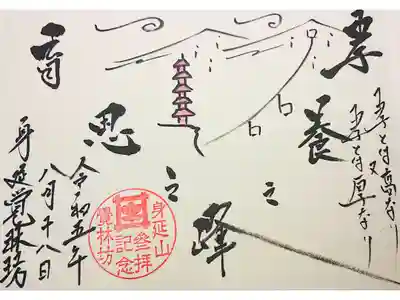 孝養之峰
孝とは高なり
又
孝とは厚なり
之
令和五年
八月十八日
身延覚林坊
身延山
參拝
記念
覺林坊